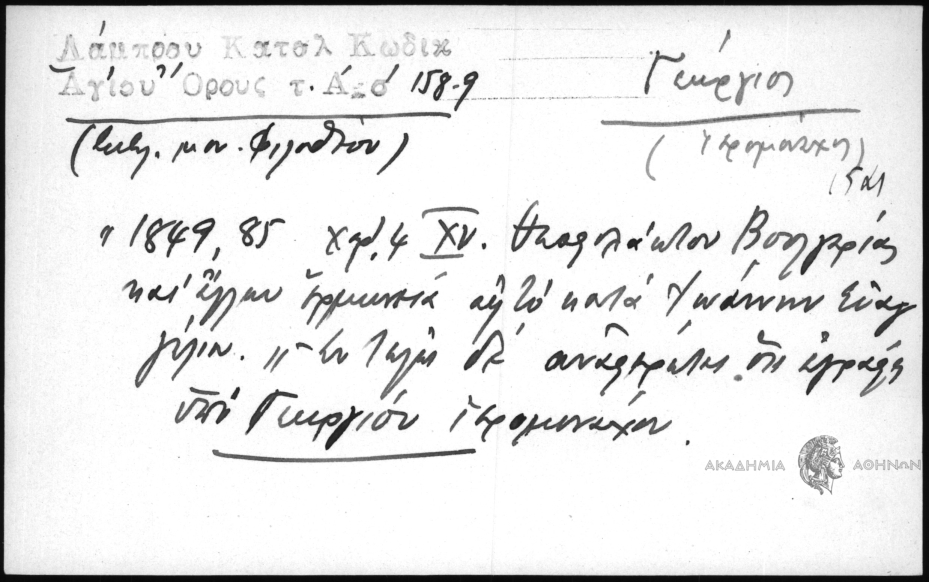 Λάμπρου Καταλ Κωδικ
Ἁγίου Ὄρους τ. Α΄ 158-9
Γεώργιος
(βιβλ. μον. Φιλοθέου)
(ἱερομόναχος)
" 1849, 85 χαρ. 4 XV. Θεοφυλάκτου Βουλγαρίας
καὶ ἄλλων ἑρμηνεία εἰς τὸ κατὰ Ἰωάννην Εὐαγ
γέλιον. Ἐν τέλει δὲ ἀναφέρεται ὅτι ἐγράφη
ὑπὸ Γεωργίου ἱερομονάχου.
ΑΚΑΔΗΜΙΑ ΑΘΗΝΩΝ